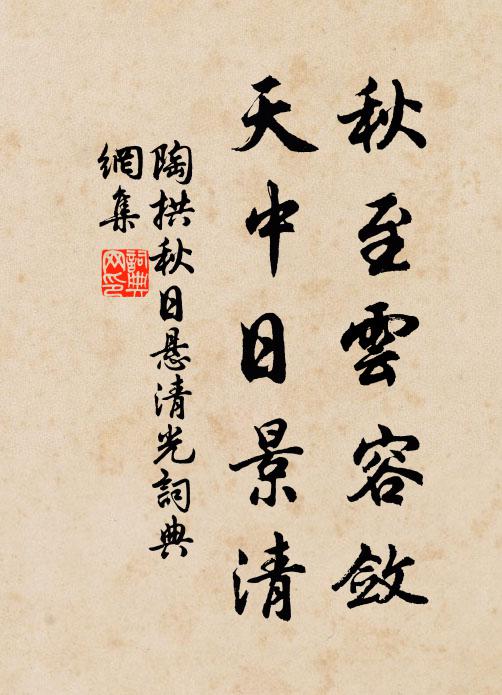 秋至雲容斂
天中日景清
陶拱秋日悬清光詞典
網集
詞典
网印